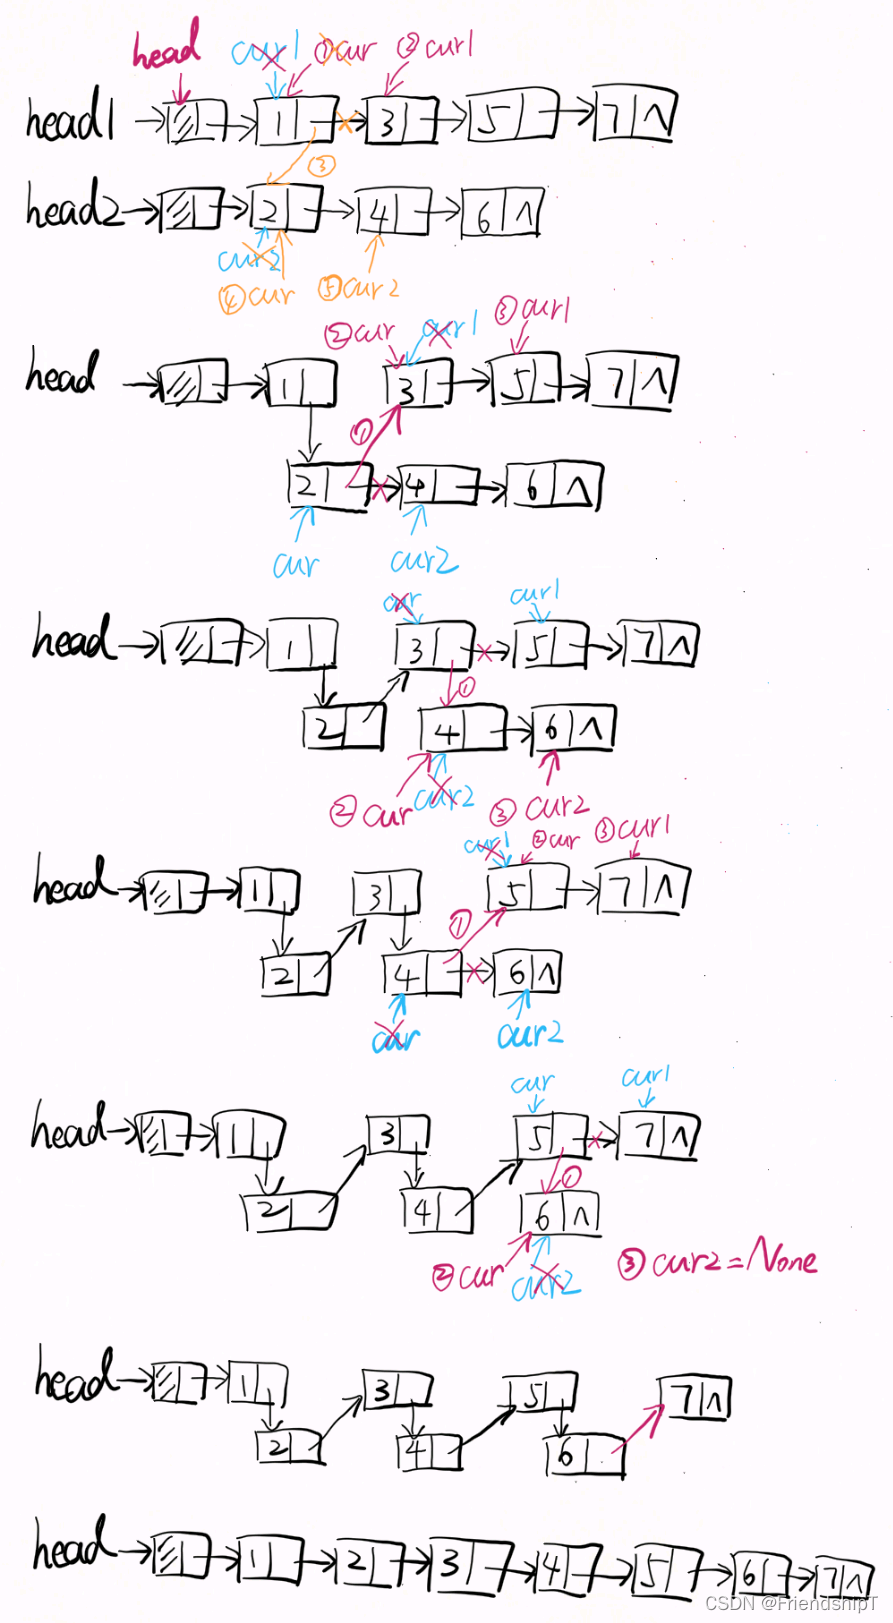 head cur1 ①cur ②cur1
head1 1 3 5 7 ∧
③
head2 2 4 6 ∧
cur2
④cur ⑤cur2
②cur cur1 ③cur1
head 1 3 5 7 ∧
①
2 4 6 ∧
cur cur2
cur cur1
head 1 3 5 7 ∧
①
2 4 6 ∧
②cur cur2 ③cur2
cur1 ②cur ③cur1
head 1 3 5 7 ∧
①
2 4 6 ∧
cur cur2
cur cur1
head 1 3 5 7 ∧
①
2 4 6 ∧
②cur cur2 ③cur2=None
head 1 3 5 7 ∧
2 4 6
head 1 2 3 4 5 6 7 ∧
CSDN @FriendshipT